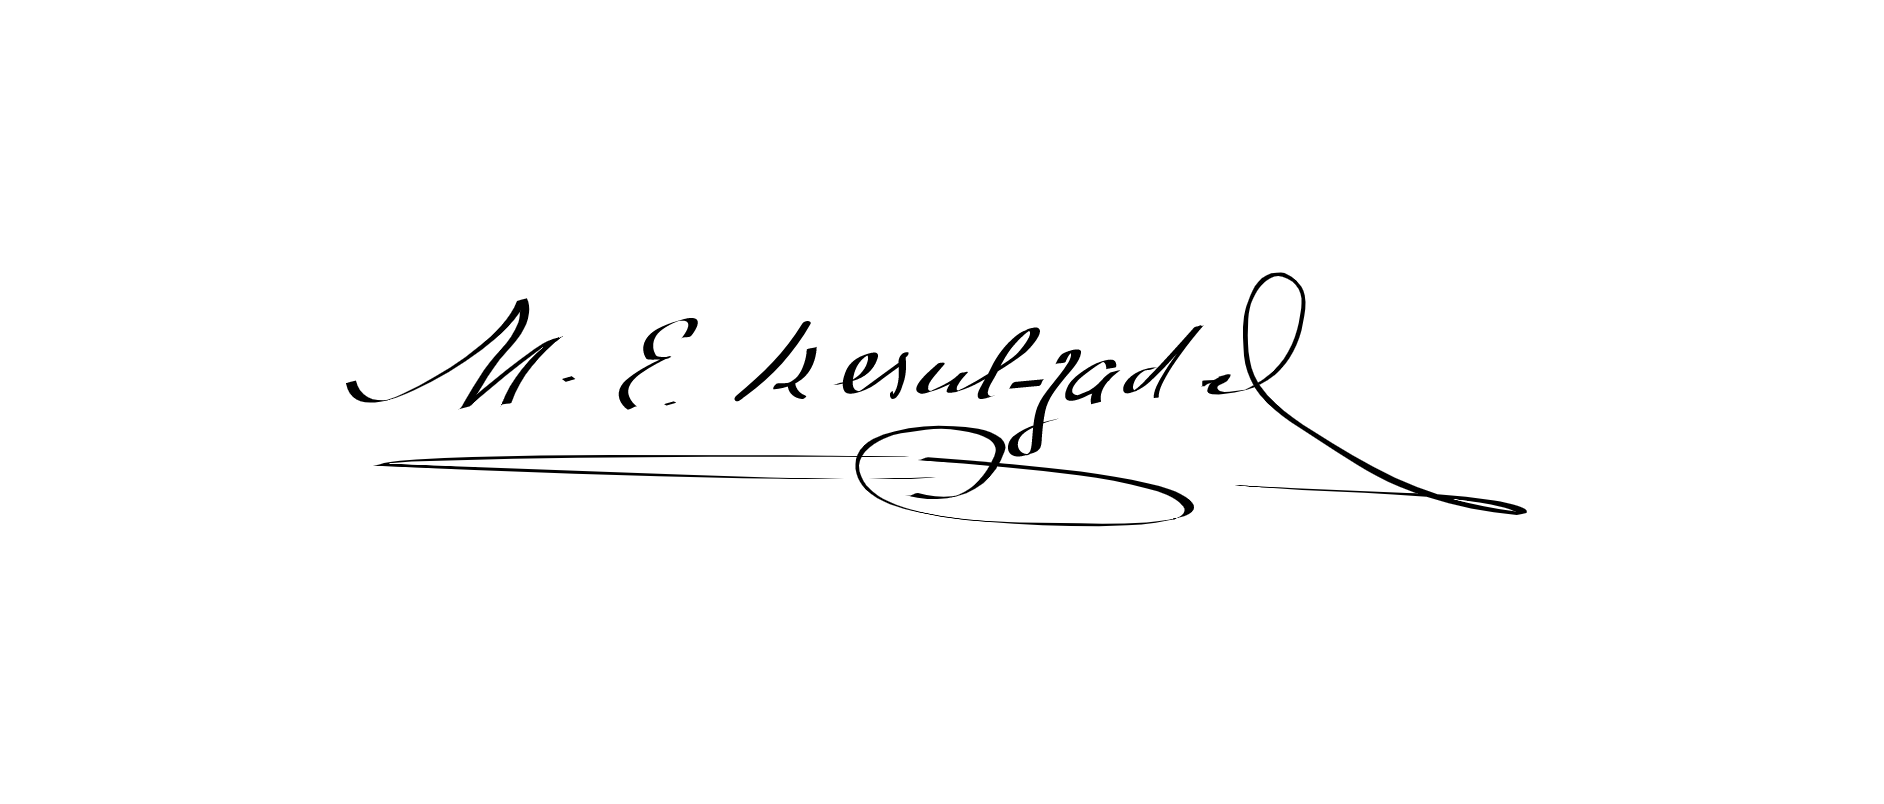 M. E. Resul-zade